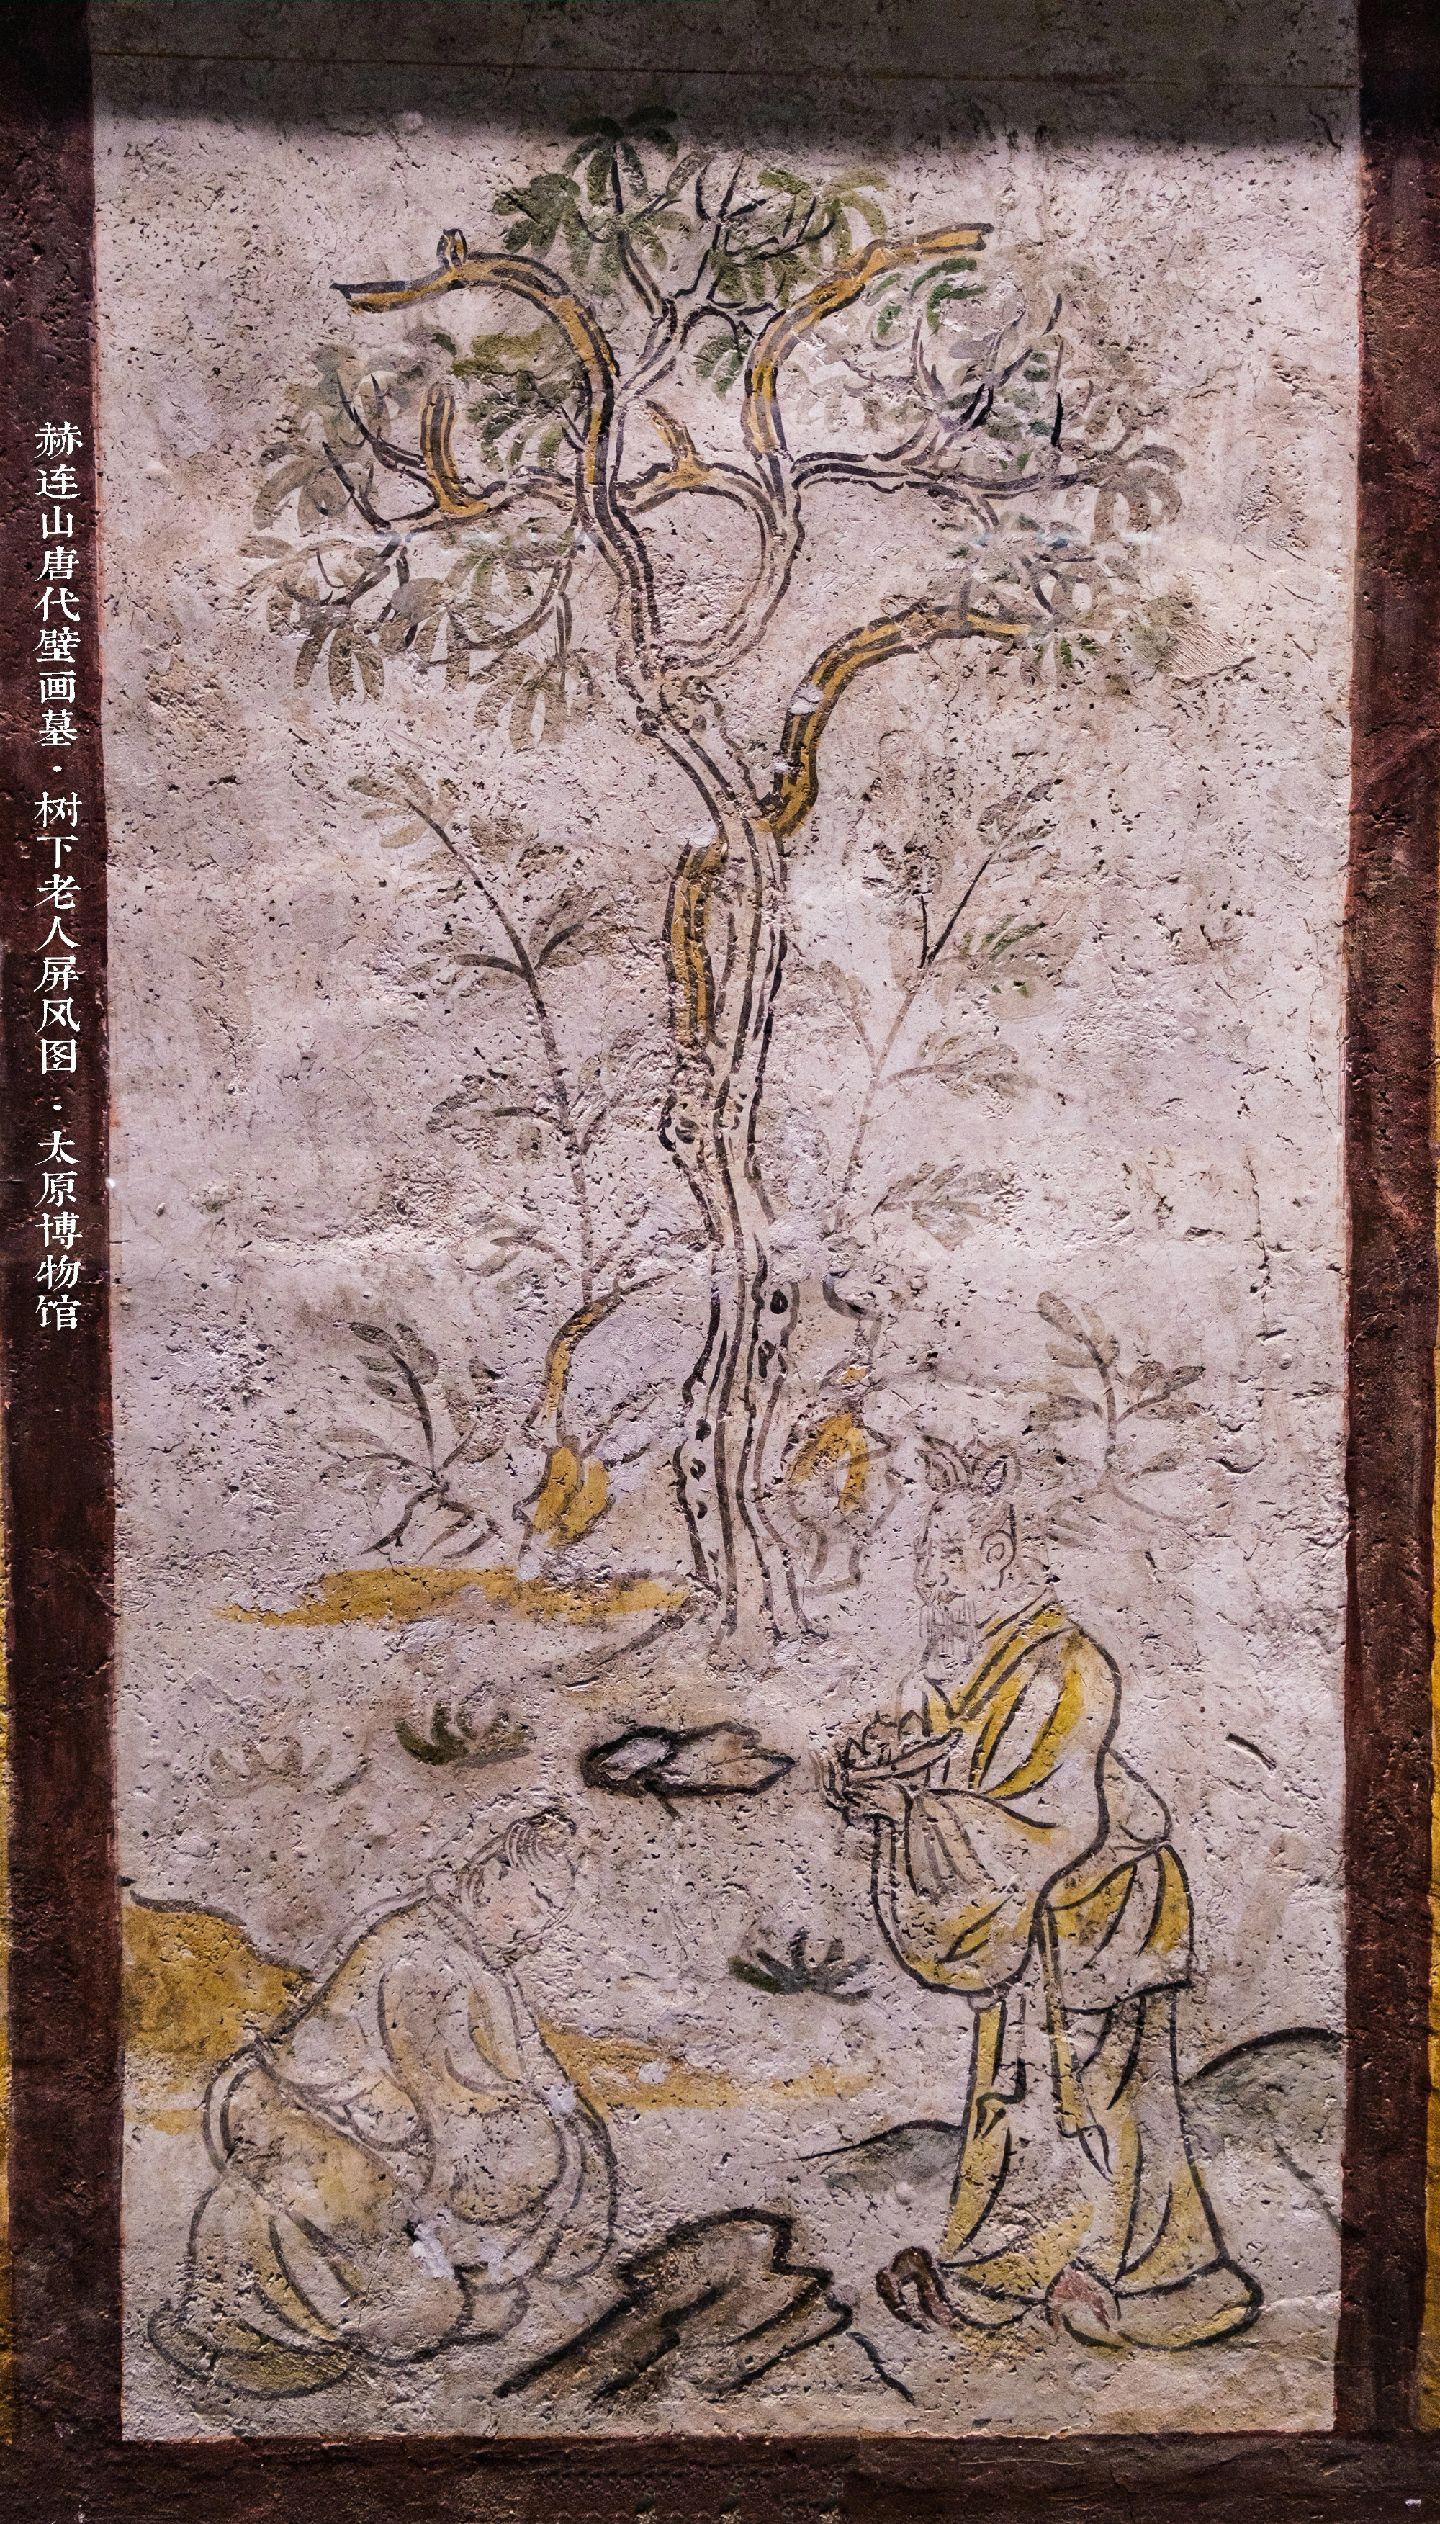 赫连山唐代壁画墓·树下老人屏风图·太原博物馆